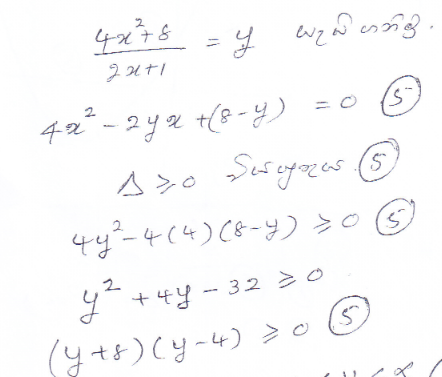 (4x²+8)/(2x+1) = y යැයි ගනිමු.
4x² - 2yx + (8-y) = 0 (5)
Δ ≥ 0 විය යුතුය. (5)
4y² - 4(4)(8-y) ≥ 0 (5)
y² + 4y - 32 ≥ 0
(y+8)(y-4) ≥ 0 (5)